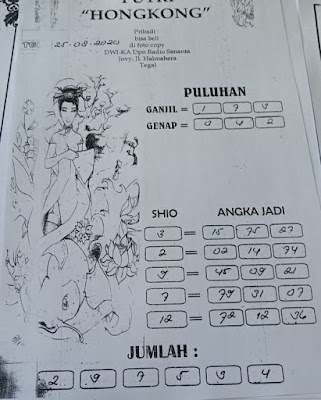 PUTRI
"HONGKONG"
Pribadi :
bisa beli
di foto copy
DWI-KA Dpn Radio Sananta
Jovy, Jl. Halmahera
Tegal
25-08-2020
PULUHAN
GANJIL = 1 7 9
GENAP = 0 4 2
SHIO ANGKA JADI
3 = 15 75 27
2 = 02 14 74
9 = 45 09 21
7 = 79 31 07
12 = 72 12 36
JUMLAH :
2 9 7 5 3 4